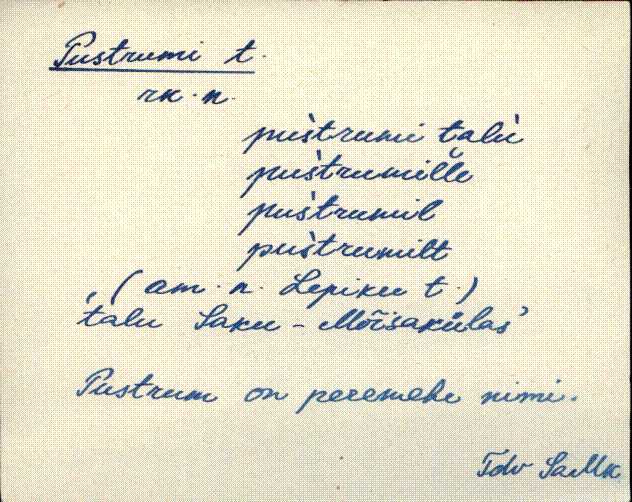 Pustrumi t.
rk. n.
puśtrumi talu
puśtrumiĺle
puśtrumil
puśtrumilt
(am. n. Lepiku t.)
'talu Saku-Mõisakülas'
Pustrum on peremehe nimi.